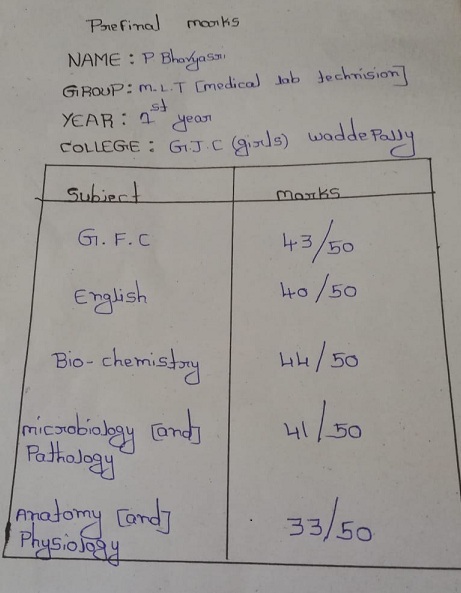 Prefinal marks
NAME : P Bhavyasri
GROUP : M.L.T [medical lab technision]
YEAR : 1st year
COLLEGE : G.J.C (girls) waddepally
Subject marks
G.F.C 43/50
English 40/50
Bio-chemistry 44/50
microbiology [and] 41/50
Pathology
Anatomy [and] 33/50
Physiology